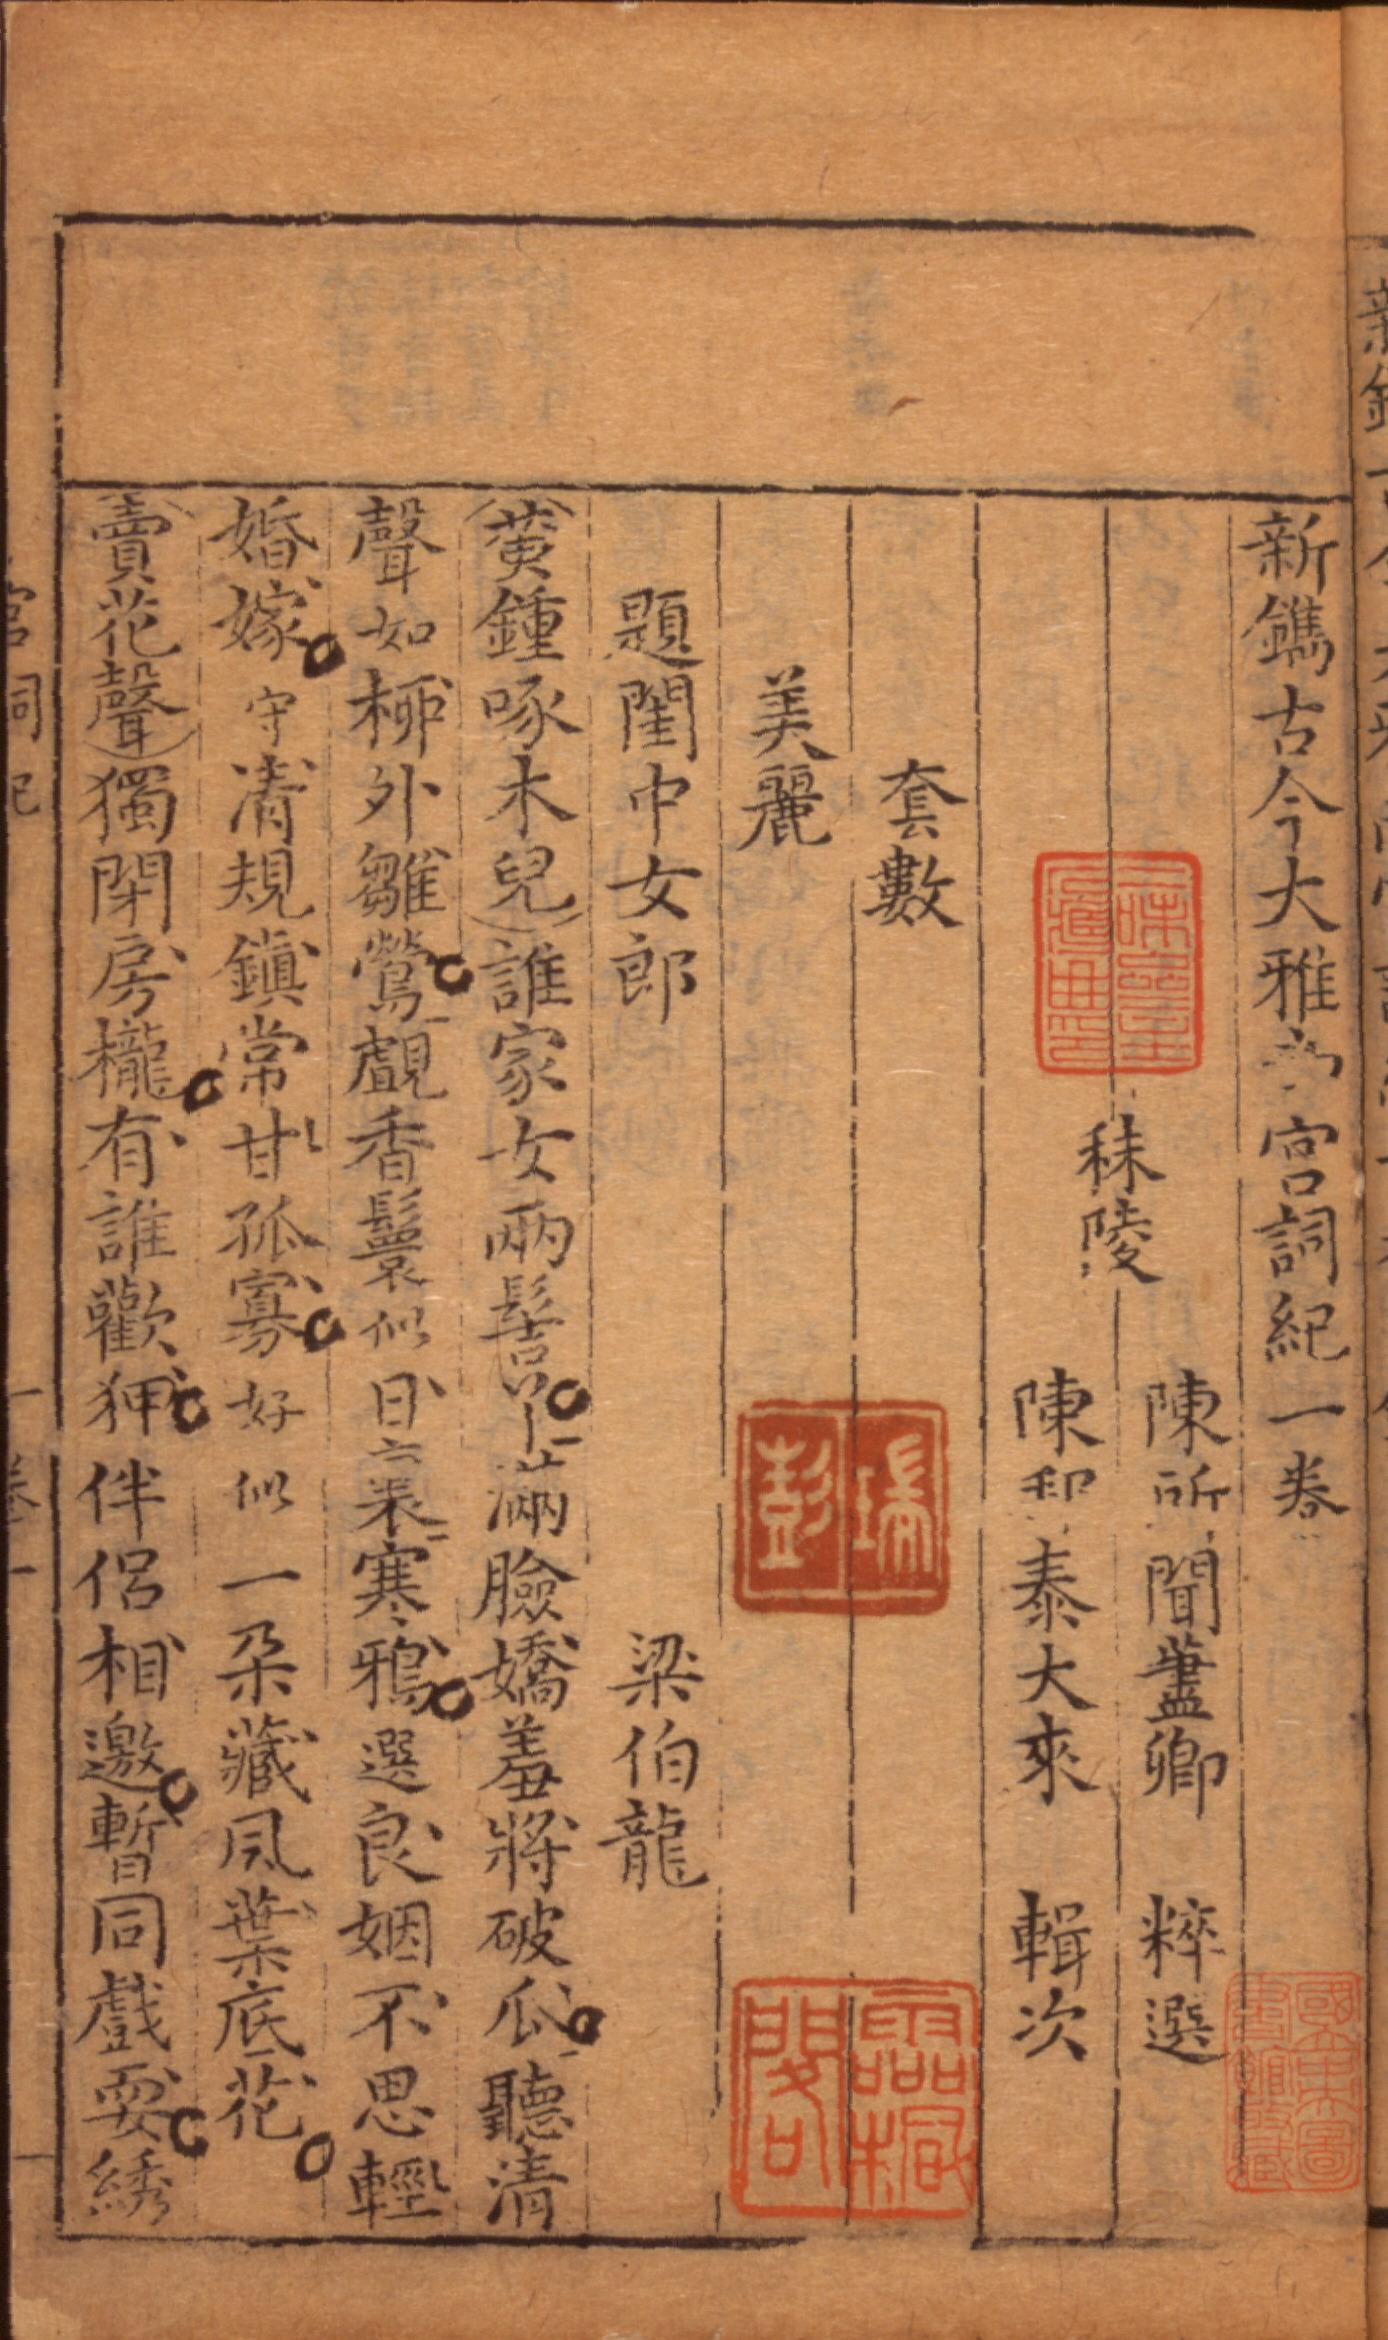 新鐫古今大雅宮詞紀一卷
秣陵
陳所聞藎卿 粹選
陳邦泰大來 輯次
套數
美麗
題閨中女郎 梁伯龍
黃鍾啄木兒誰家女兩髻丫滿臉嬌羞將破瓜聽清
聲如柳外雛鶯覷香鬟似日裏寒鴉選良姻不思輕
婚嫁守清規鎮常甘孤寡好似一朵藏風葉底花
賣花聲獨閉房櫳有誰歡狎伴侶相邀暫同戲耍綉
瑞
彭
宮詞紀
卷一